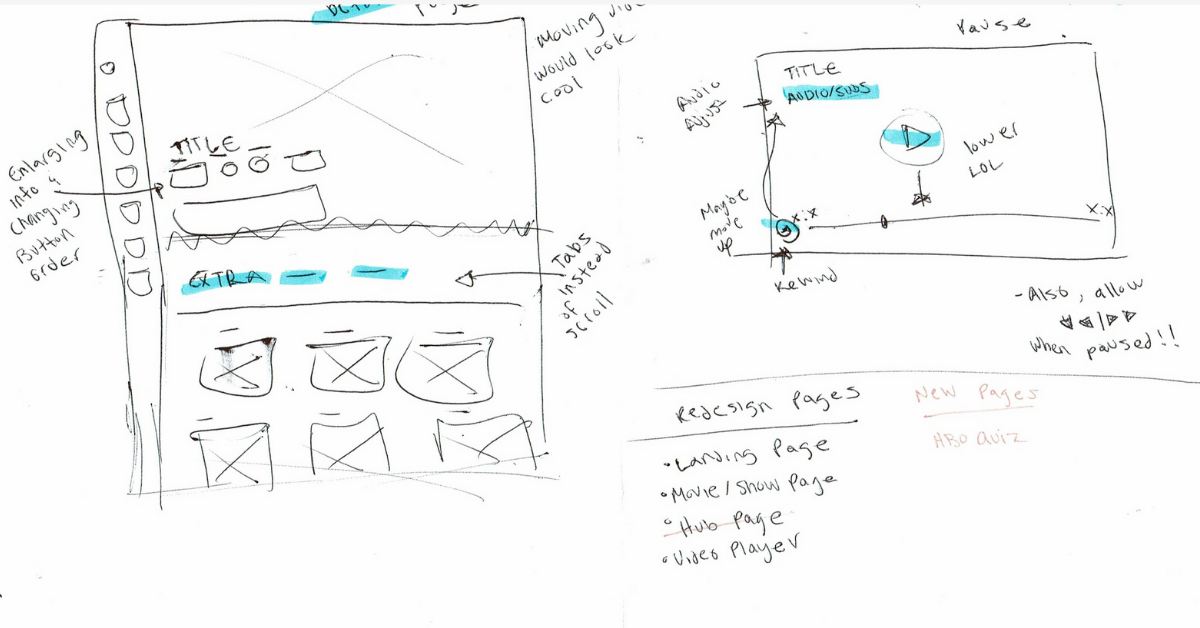 Page
Moving
would look
cool
Enlarging
Info &
Changing
Button
order
TITLE
EXTRA
Tabs
instead
of
scroll
Pause
TITLE
AUDIO/SUBS
Audio
Adjust
lower
LOL
Maybe
move
up
x:x
x:x
Rewind
- Also, allow
when paused!!
Redesign Pages
• Landing Page
• Movie/Show Page
• Hub Page
• Video Player
New Pages
HBO Quiz